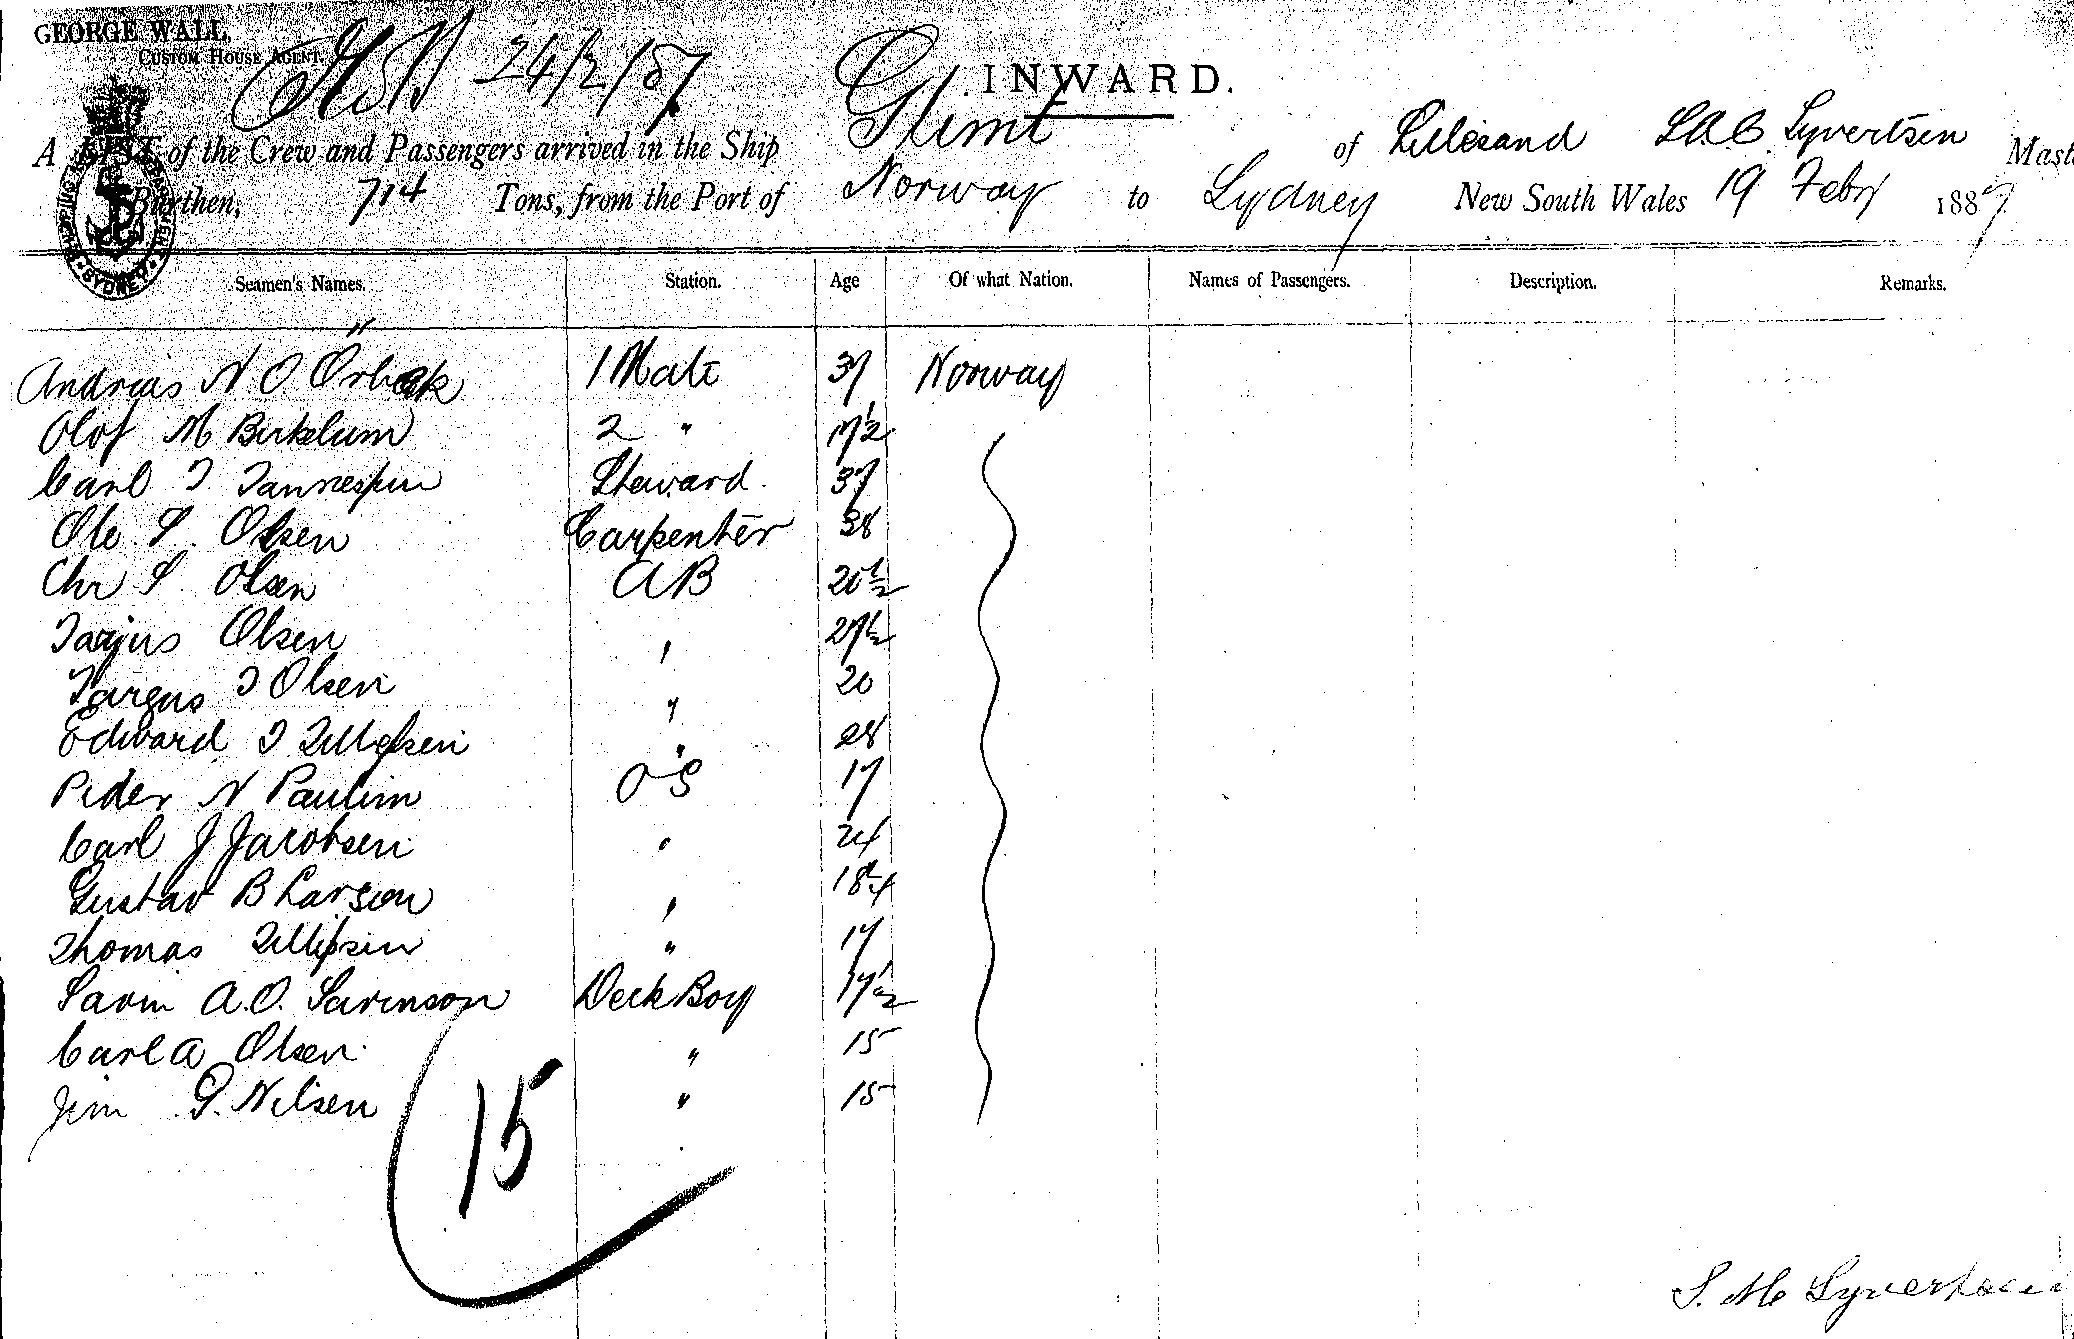 GEORGE WALL,
CUSTOM HOUSE AGENT.
24/2/87
INWARD.
A LIST of the Crew and Passengers arrived in the Ship Glimt of Lillesand Syvertsen Mast
Burthen, 714 Tons, from the Port of Norway to Sydney New South Wales 19 Feby 1887
Seamen's Names. Station. Age Of what Nation. Names of Passengers. Description. Remarks.
Andreas N O Örbek 1 Mate 37 Norway
Olof M Birkelum 2 " 17½
Carl T Steward 37
Ole S. Olsen Carpenter 38
Chr S Olsen AB 20½
Tarjus Olsen " 27½
Targus T Olsen " 20
Edward T Tellefsen " 28
Peder N Paulin OS 17
Carl J Jacobsen " 24
Gustav B Larson " 18¼
Thomas Tellefsen " 17
A.O. Sorenson Deck Boy 17½
Carl A Olsen " 15
Jim G. Nilsen " 15
15
S. M Syvertsen